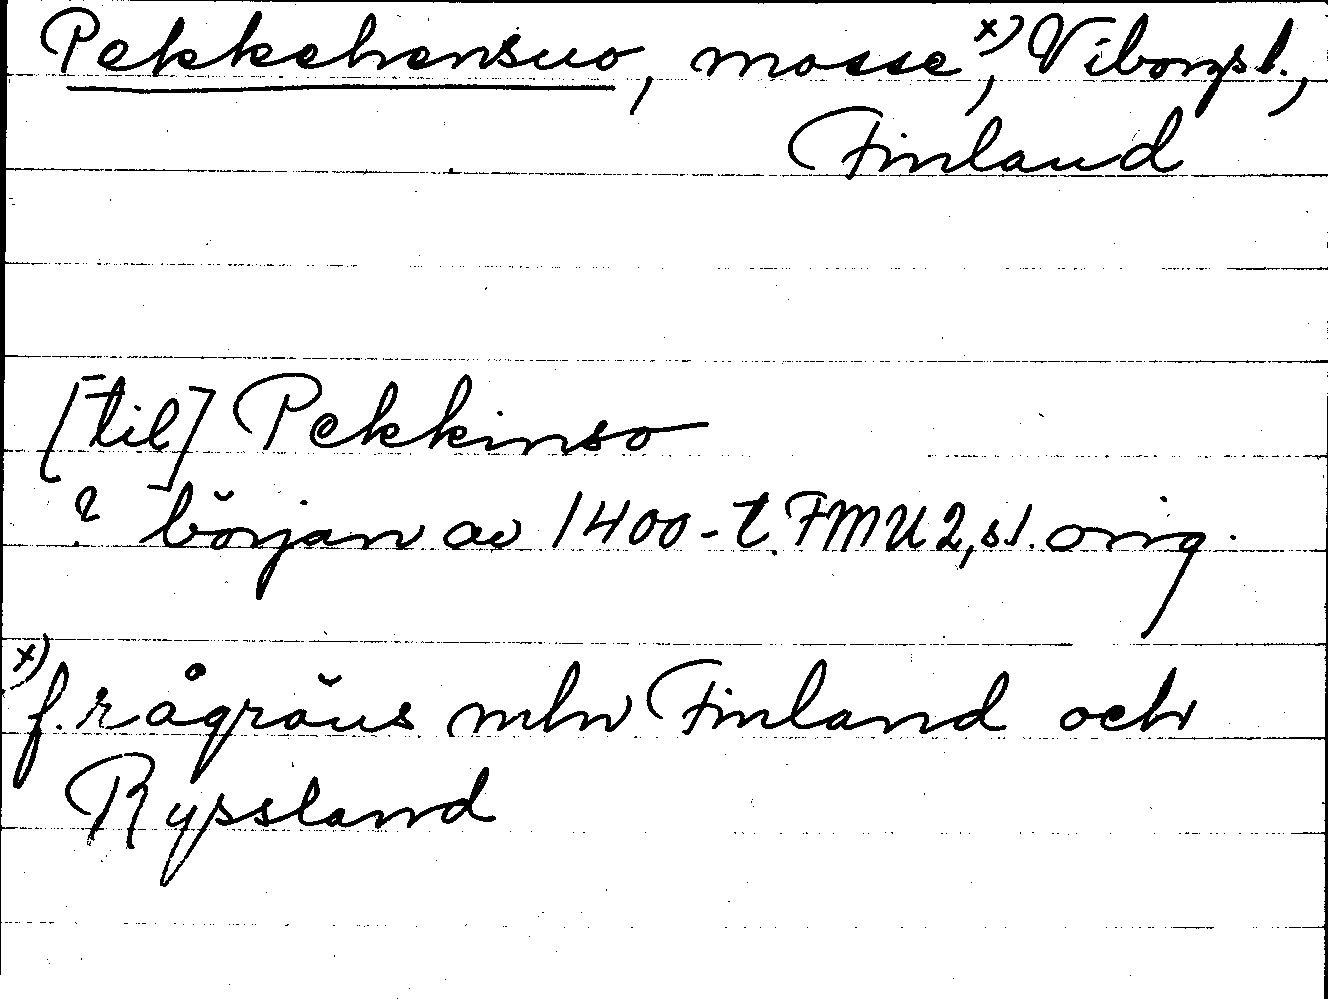 Pekkehensuo, mosse x), Viborgs l.,
Finland
[til] Pekkinso
? början av 1400-t. FMU 2, s1. orig.
x) f. rågräns mln Finland och
Ryssland